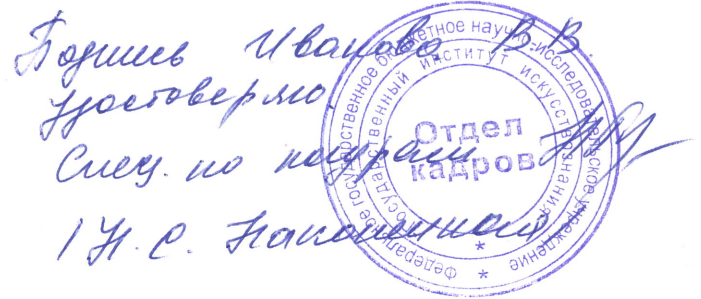 Подпись Иванова В.В.
удостоверяю.
Спец. по кадрам
/ Н. С.
Федеральное государственное бюджетное научно-исследовательское учреждение
Государственный институт искусствознания
Отдел
кадров